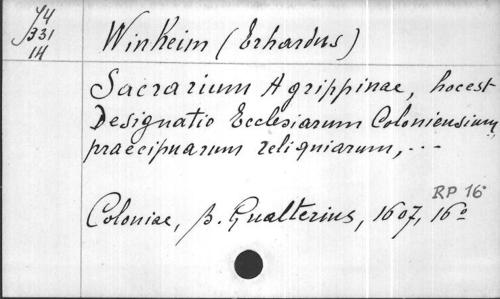 J4
331
14
Winheim (Erhardus)
Sacrarium Agrippinae, hoc est
Designatio Ecclesiarum Coloniensium,
praecipuarum reliquiarum, ...
RP 16
Coloniae, B. Gualterius, 1607, 16º